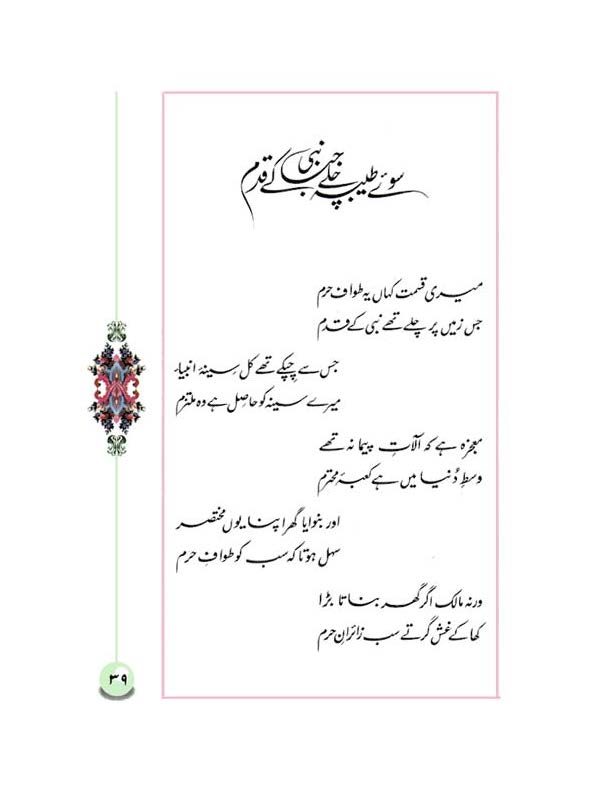 سوئے طیبہ چلے جب نبی کے قدم
میری قسمت کہاں یہ طواف حرم
جس زمیں پر چلے تھے نبی کے قدم
جس سے چپکے تھے کل سینۂ انبیاء
میرے سینہ کو حاصل ہے وہ ملتزم
معجزہ ہے کہ آلاتِ پیما نہ تھے
وسطِ دُنیا میں ہے کعبۂ محترم
اور بنوایا گھر اپنا یوں مختصر
سہل ہوتا کہ سب کو طوافِ حرم
ورنہ مالک اگر گھر بناتا بڑا
کھا کے غش گرتے سب زائرانِ حرم
۳۹